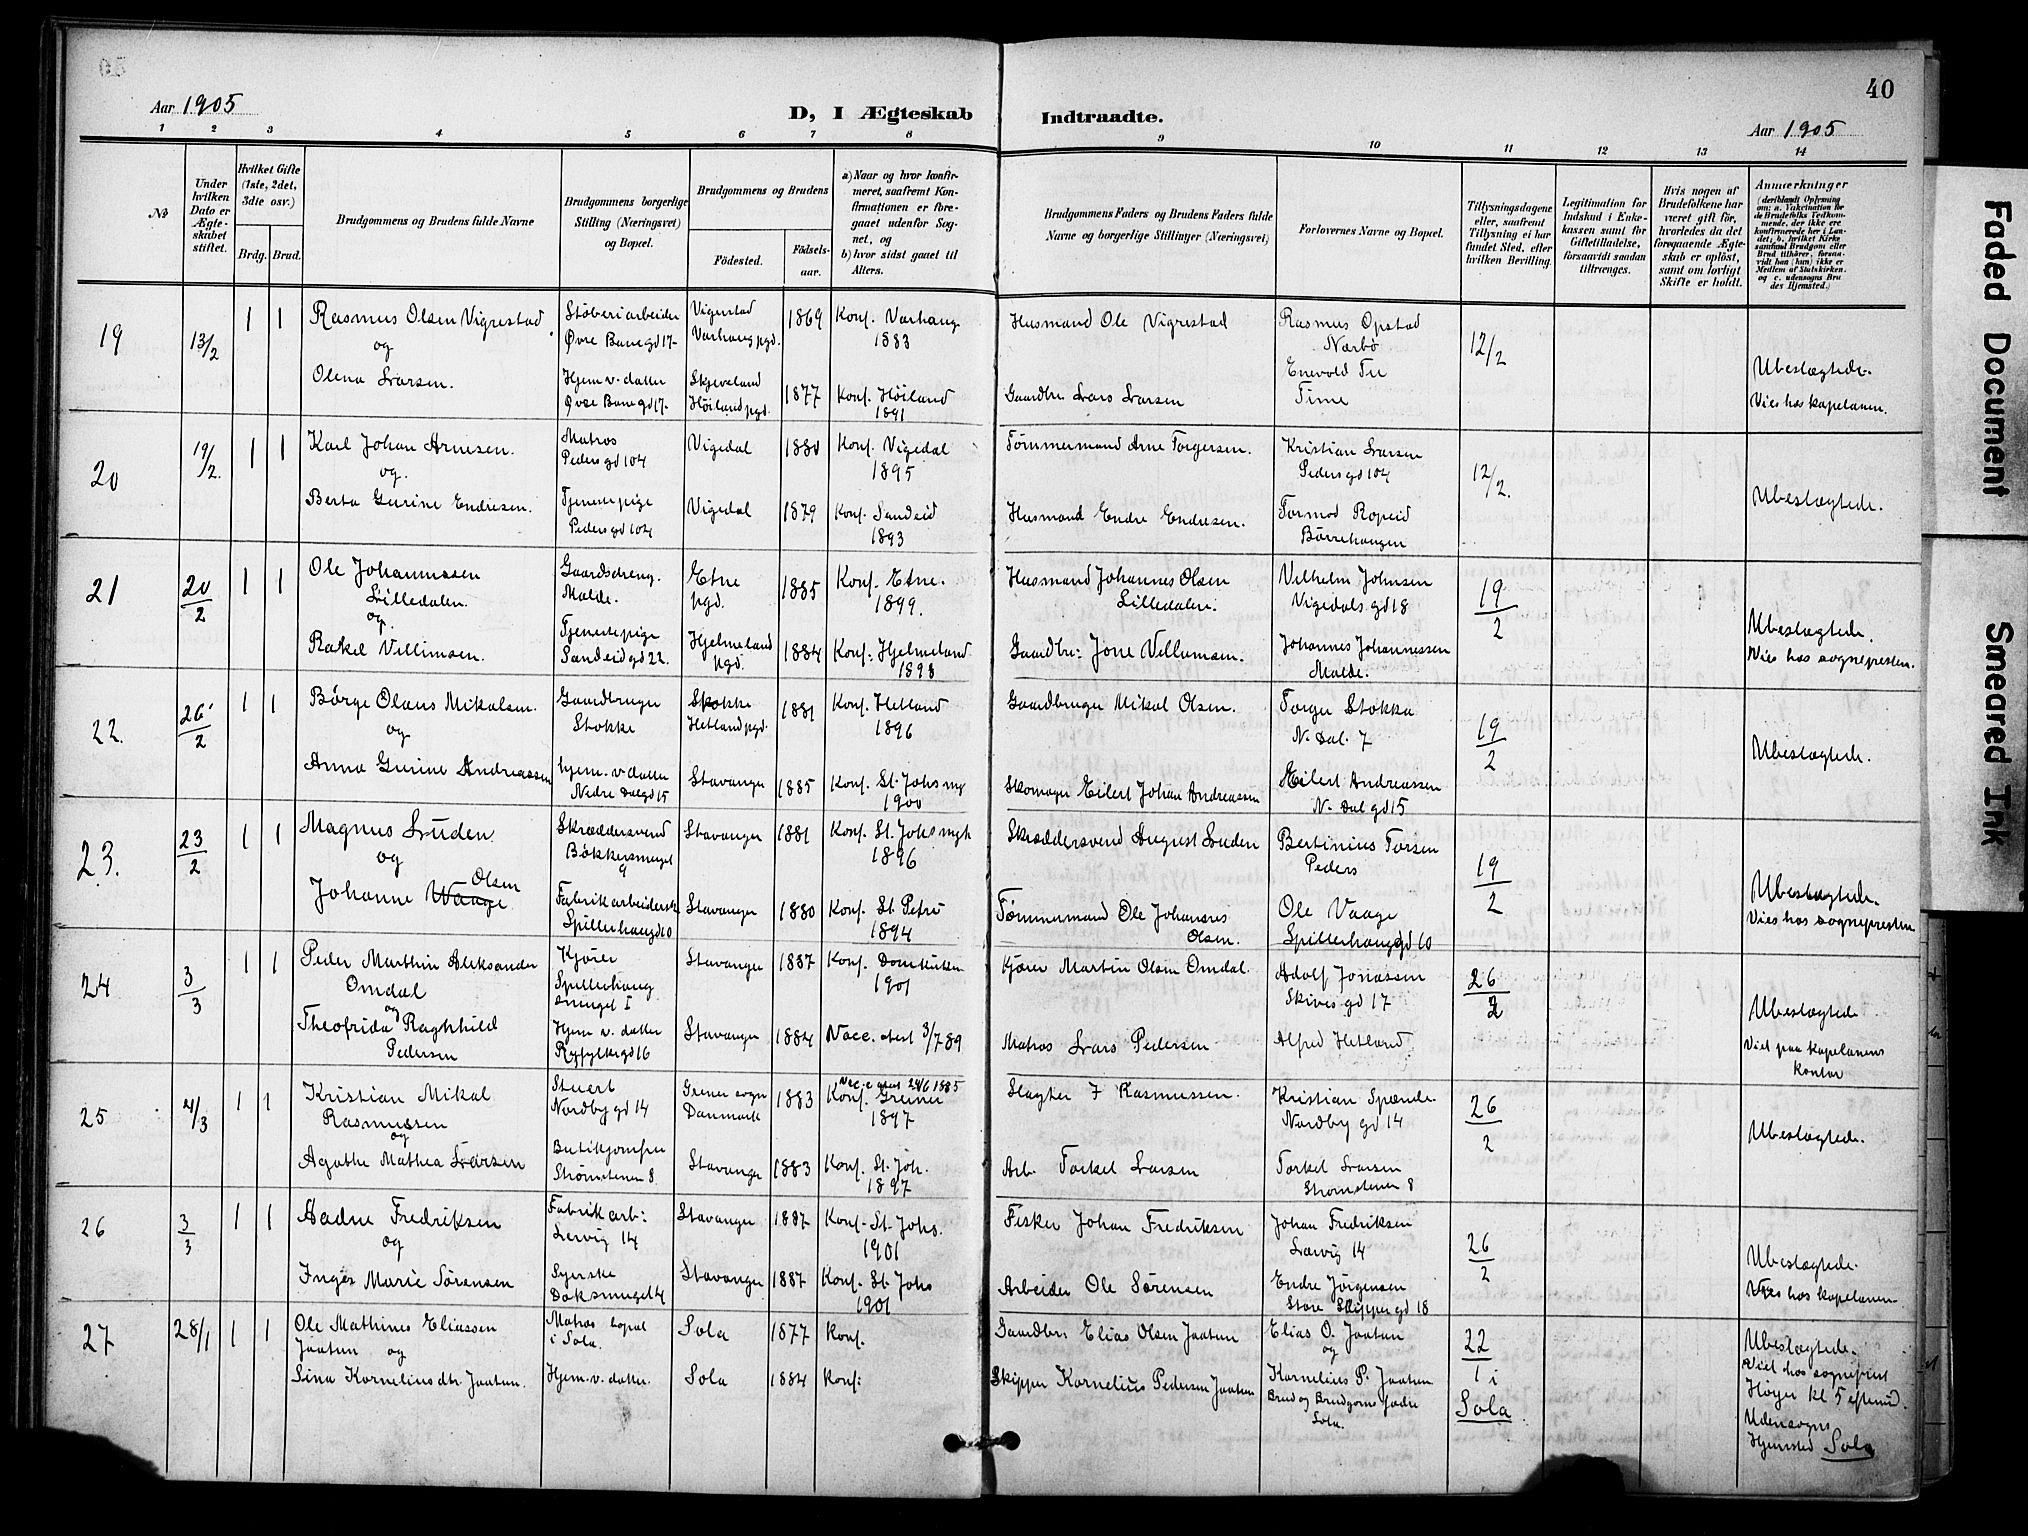 40
Aar 1905
D, I Ægteskab Indtraadte.
Aar 1905
1 2 3 4 5 6 7 8 9 10 11 12 13 14
No
Under hvilken Dato er Ægteskabet stiftet.
Hvilket Gifte (1ste, 2det, 3die osv.)
Brdg. Brud.
Brudgommens og Brudens fulde Navne
Brudgommens borgerlige Stilling (Næringsvei) og Bopæl.
Brudgommens og Brudens
Fødested.
Fødselsaar.
a) Naar og hvor konfirmeret, saafremt Konfirmationen er foregaaet udenfor Sognet, og
b) hvor sidst gaaet til Alters.
Brudgommens Faders og Brudens Faders fulde Navne og borgerlige Stillinger (Næringsvei)
Forlovernes Navne og Bopæl.
Tillysningsdagene eller, saafremt Tillysning ei har fundet Sted, efter hvilken Bevilling.
Legitimation for Indskud i Enkekassen samt for Giftetilladelse, forsaavidt saadan tiltrænges.
Hvis nogen af Brudefolkene har været gift før, hvorledes da det foregaaende Ægteskab er opløst, samt om lovligt Skifte er holdt.
Anmærkninger
19 13/2 1 1 Rasmus Olsen Vigrestad Støberiarbeider Vigrestad 1869 Konf. Varhaug Husmand Ole Vigrestad Rasmus Opstad 12/2
og Øvre Banegd 17 Varhaug pgd. 1883 Nærbø
Olena Larsen. Hjem v. datter Skjeveland 1877 Konf. Höiland Gaardbr. Lars Larsen Enevold Tu Ubeslægtede.
Øvre Banegd 17 Höiland pgd. 1891 Time Vies hos kapelanen.
20 19/2. 1 1 Karl Johan Arnesen. Matros Vigedal 1880 Konf. Vigedal Tømmermand Arne Torgersen. Kristian Larsen 12/2.
og. Pedersgd 104 1895 Pedersgd 104
Berta Gurine Endresen. Tjenestepige Vigedal 1879 Konf. Sandeid Husmand Endre Endresen. Tormod Ropeid Ubeslægtede.
Pedersgd 104 1893 Børrehaugen
21 20/2 1 1 Ole Johannessen Gaardsdreng. Etne 1885 Konf. Etne. Husmand Johannes Olsen Vilhelm Johnsen 19/2
Lilledalen. Malde. pgd. 1899. Lilledalen. Vigedalsgd 18
og.
Rakel Villimsen. Tjenestepige Hjelmeland 1884 Konf: Hjelmeland Gaardbr: Jone Villumsen. Johannes Johannessen Ubeslægtede.
Sandeidgd 22. pgd. 1898 Malde. Vies hos sognepresten.
22. 26/2 1 1 Börge Olaus Mikalsen. Gaardbruger Stokke 1881 Konf. Hetland Gaardbruger Mikal Olsen. Torger Stokka 19/2
og Stokke Hetland pgd. 1896 N. Dal. 7
Anna Gurine Andreassen hjem. v datter Stavanger 1885 Konf. St. Johs mg Skomager Eilert Johan Andreassen Eilert Andreassen Ubeslægtede.
Nedre Dalgd 15 1900 N. Dal gd 15
23. 23/2 1 1 Magnus Luden Skræddersvend Stavanger 1881 Konf. St. Johs mgh Skræddersvend August Luden Bertinius Torsen 19/2
og Bøkkersmuget 9 1896 Peders
Johanne Waage Olsen Fabrikarbeiderske Stavanger 1880 Konf. St. Petri Tømmermand Ole Johannes Olsen. Ole Vaage Ubeslægtede.
Spilderhaugd 10 1894 Spilderhauggd 10 Vies hos sognepresten
24 3/3 1 1 Peder Marthin Aleksander Kjører Stavanger 1887 Konf. Domkirken Kjører Martin Olsen Omdal. Adolf Jonassen 26/2
Omdal Spilderhaug smuget 1 1901 Skivesgd 17
og
Theofrida Raghhild Hjem v. datter Stavanger 1884 Vacc. atest 3/7 89 Matros Lars Pedersen Alfred Hetland Ubeslægtede
Pedersen Ryfylkegd 16 Viet paa kapelanens kontor
25 4/3 1 1 Kristian Mikal Stuert Grener sogn 1883 Vacc. atest 24/6 1885 Slagter J Rasmussen. Kristian Spænde 26/2
Rasmussen Nordbygd 14 Danmark Konf. Greiner 1897 Nordbygd 14
og
Agathe Mathea Larsen Butikjomfru Stavanger 1883 Konf. St. Joh. Arb. Torkel Larsen Torkel Larsen Ubeslægtede.
Strømstenen 8. 1897 Strømstenen 8
26 3/3 1 1 Aadne Fredriksen Fabrikarb: Stavanger 1887 Konf. St. Johs. Fisker Johan Fredriksen Johan Fredriksen 26/2
og Lervig 14 1901 Lervig 14
Inger Marie Sörensen Syerske Stavanger 1887 Konf. St. Johs Arbeider Ole Sörensen Endre Jörgensen Ubeslægtede.
Doksmuget 4 1901 Store Skippergd 18 Vies hos kapelanen.
27 28/1 1 1 Ole Mathines Eliassen Matros bopæl Sola 1877 Konf. Gaardbr: Elias Olsen Jaatun Elias O. Jaatun 22/1 i Ubeslægtede.
Jaatun og i Sola. og Sola Viet hos sogneprest
Sina Korneliusdtr. Jaatun. Hjem. v. datter. Sola 1884 Konf: Skipper Kornelius Pedersen Jaatun Kornelius P. Jaatun Høyer kl 5 efterm.
Brud og Brudgoms fadre Udensogns
Sola. Hjemsted Sola
Faded Document
Smeared Ink